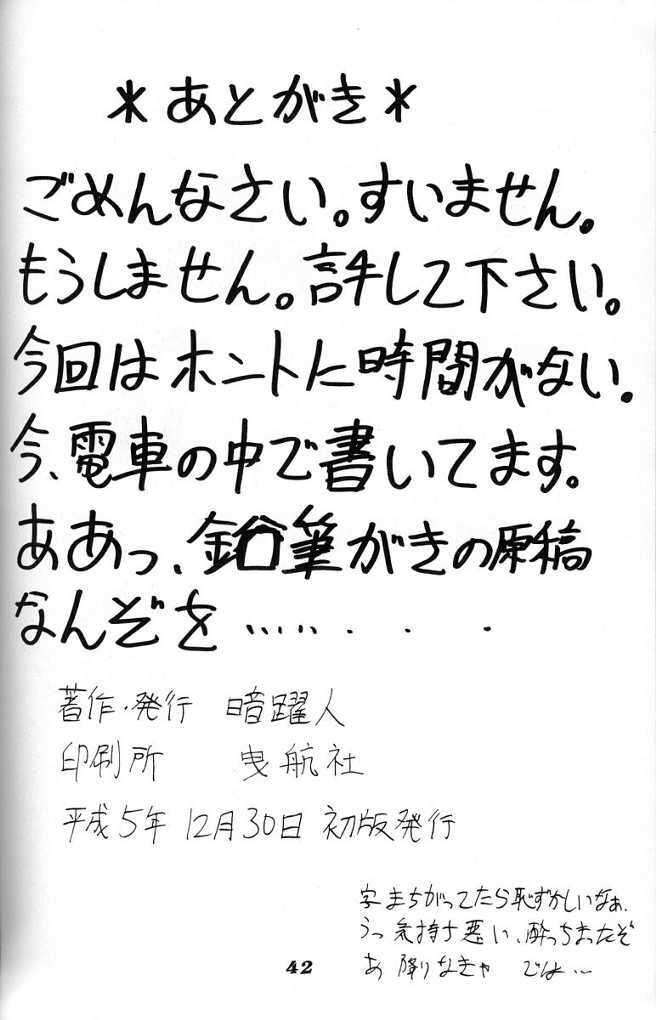 *あとがき*
ごめんなさい。すいません。
もうしません。許して下さい。
今回はホントに時間がない。
今、電車の中で書いてます。
ああっ、鉛筆がきの原稿
なんぞを……...
著作・発行 暗躍人
印刷所 曳航社
平成5年12月30日 初版発行
字まちがってたら恥ずかしいなぁ、
うっ気持ち悪い、酔っちまったぞ
あ 降りなきゃ では…
42